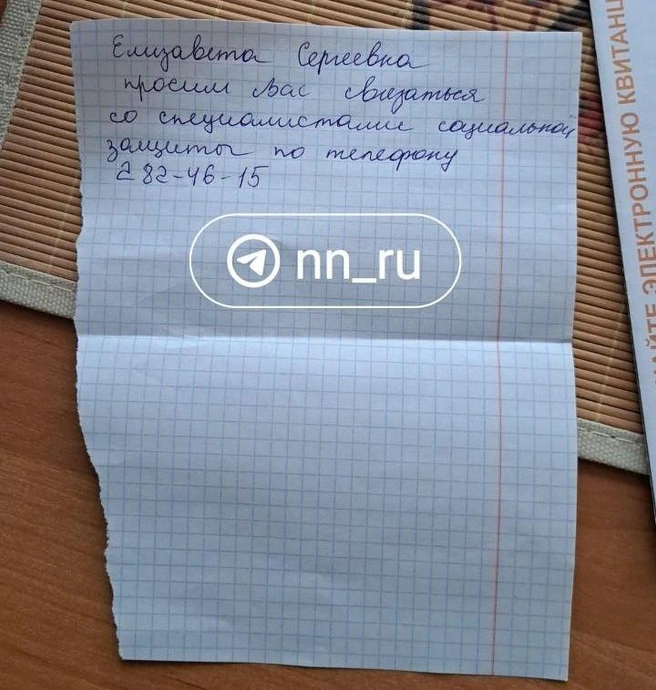 Елизавета Сергеевна
просим Вас связаться
со специалистами социальной
защиты по телефону
282-46-15
nn_ru
ЭЛЕКТРОННУЮ КВИТАНЦ